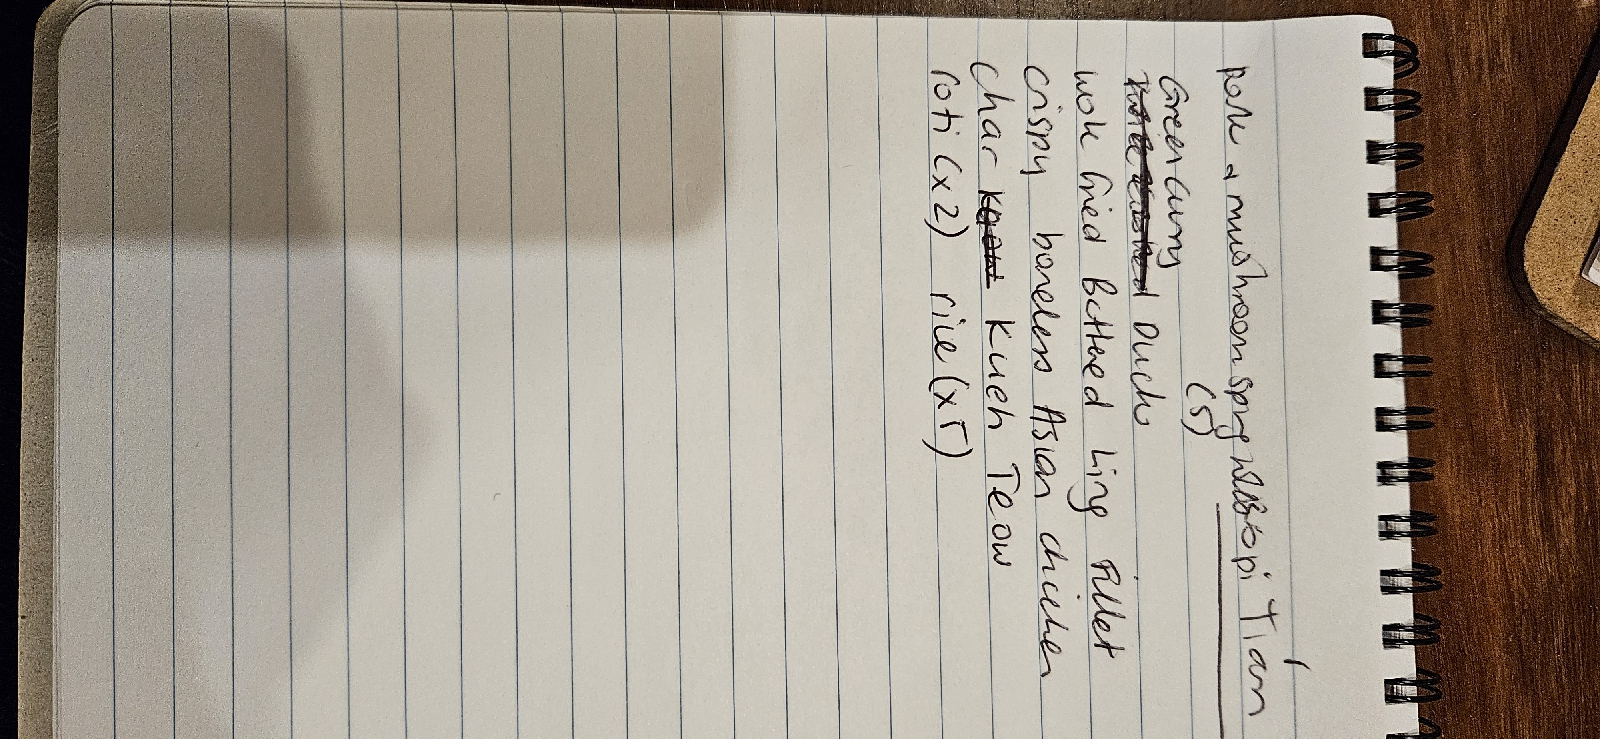 Pork & mushroom spring
Tian
(5)
Green curry
Duck
wok fried Battered Ling Fillet
crispy boneless Asian chicken
Char Kueh Teow
roti (x2) rice (x5)